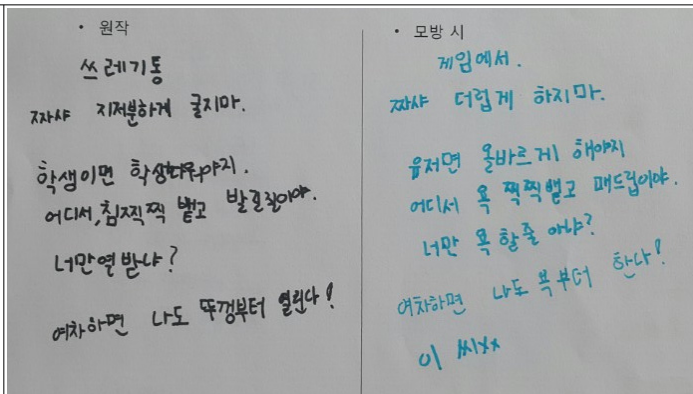 • 원작
쓰레기통
짜샤 지저분하게 굴지마.
학생이면 학생다워야지.
어디서, 침찍찍 뱉고 발길질이야.
너만열받냐?
여차하면 나도 뚜껑부터 열린다!
• 모방 시
게임에서.
짜샤 더럽게 하지마.
유저면 올바르게 해야지
어디서 욕 찍찍뱉고 패드립이야.
너만 욕할줄 아냐?
여차하면 나도 욕부터 한다!
이 씨xx